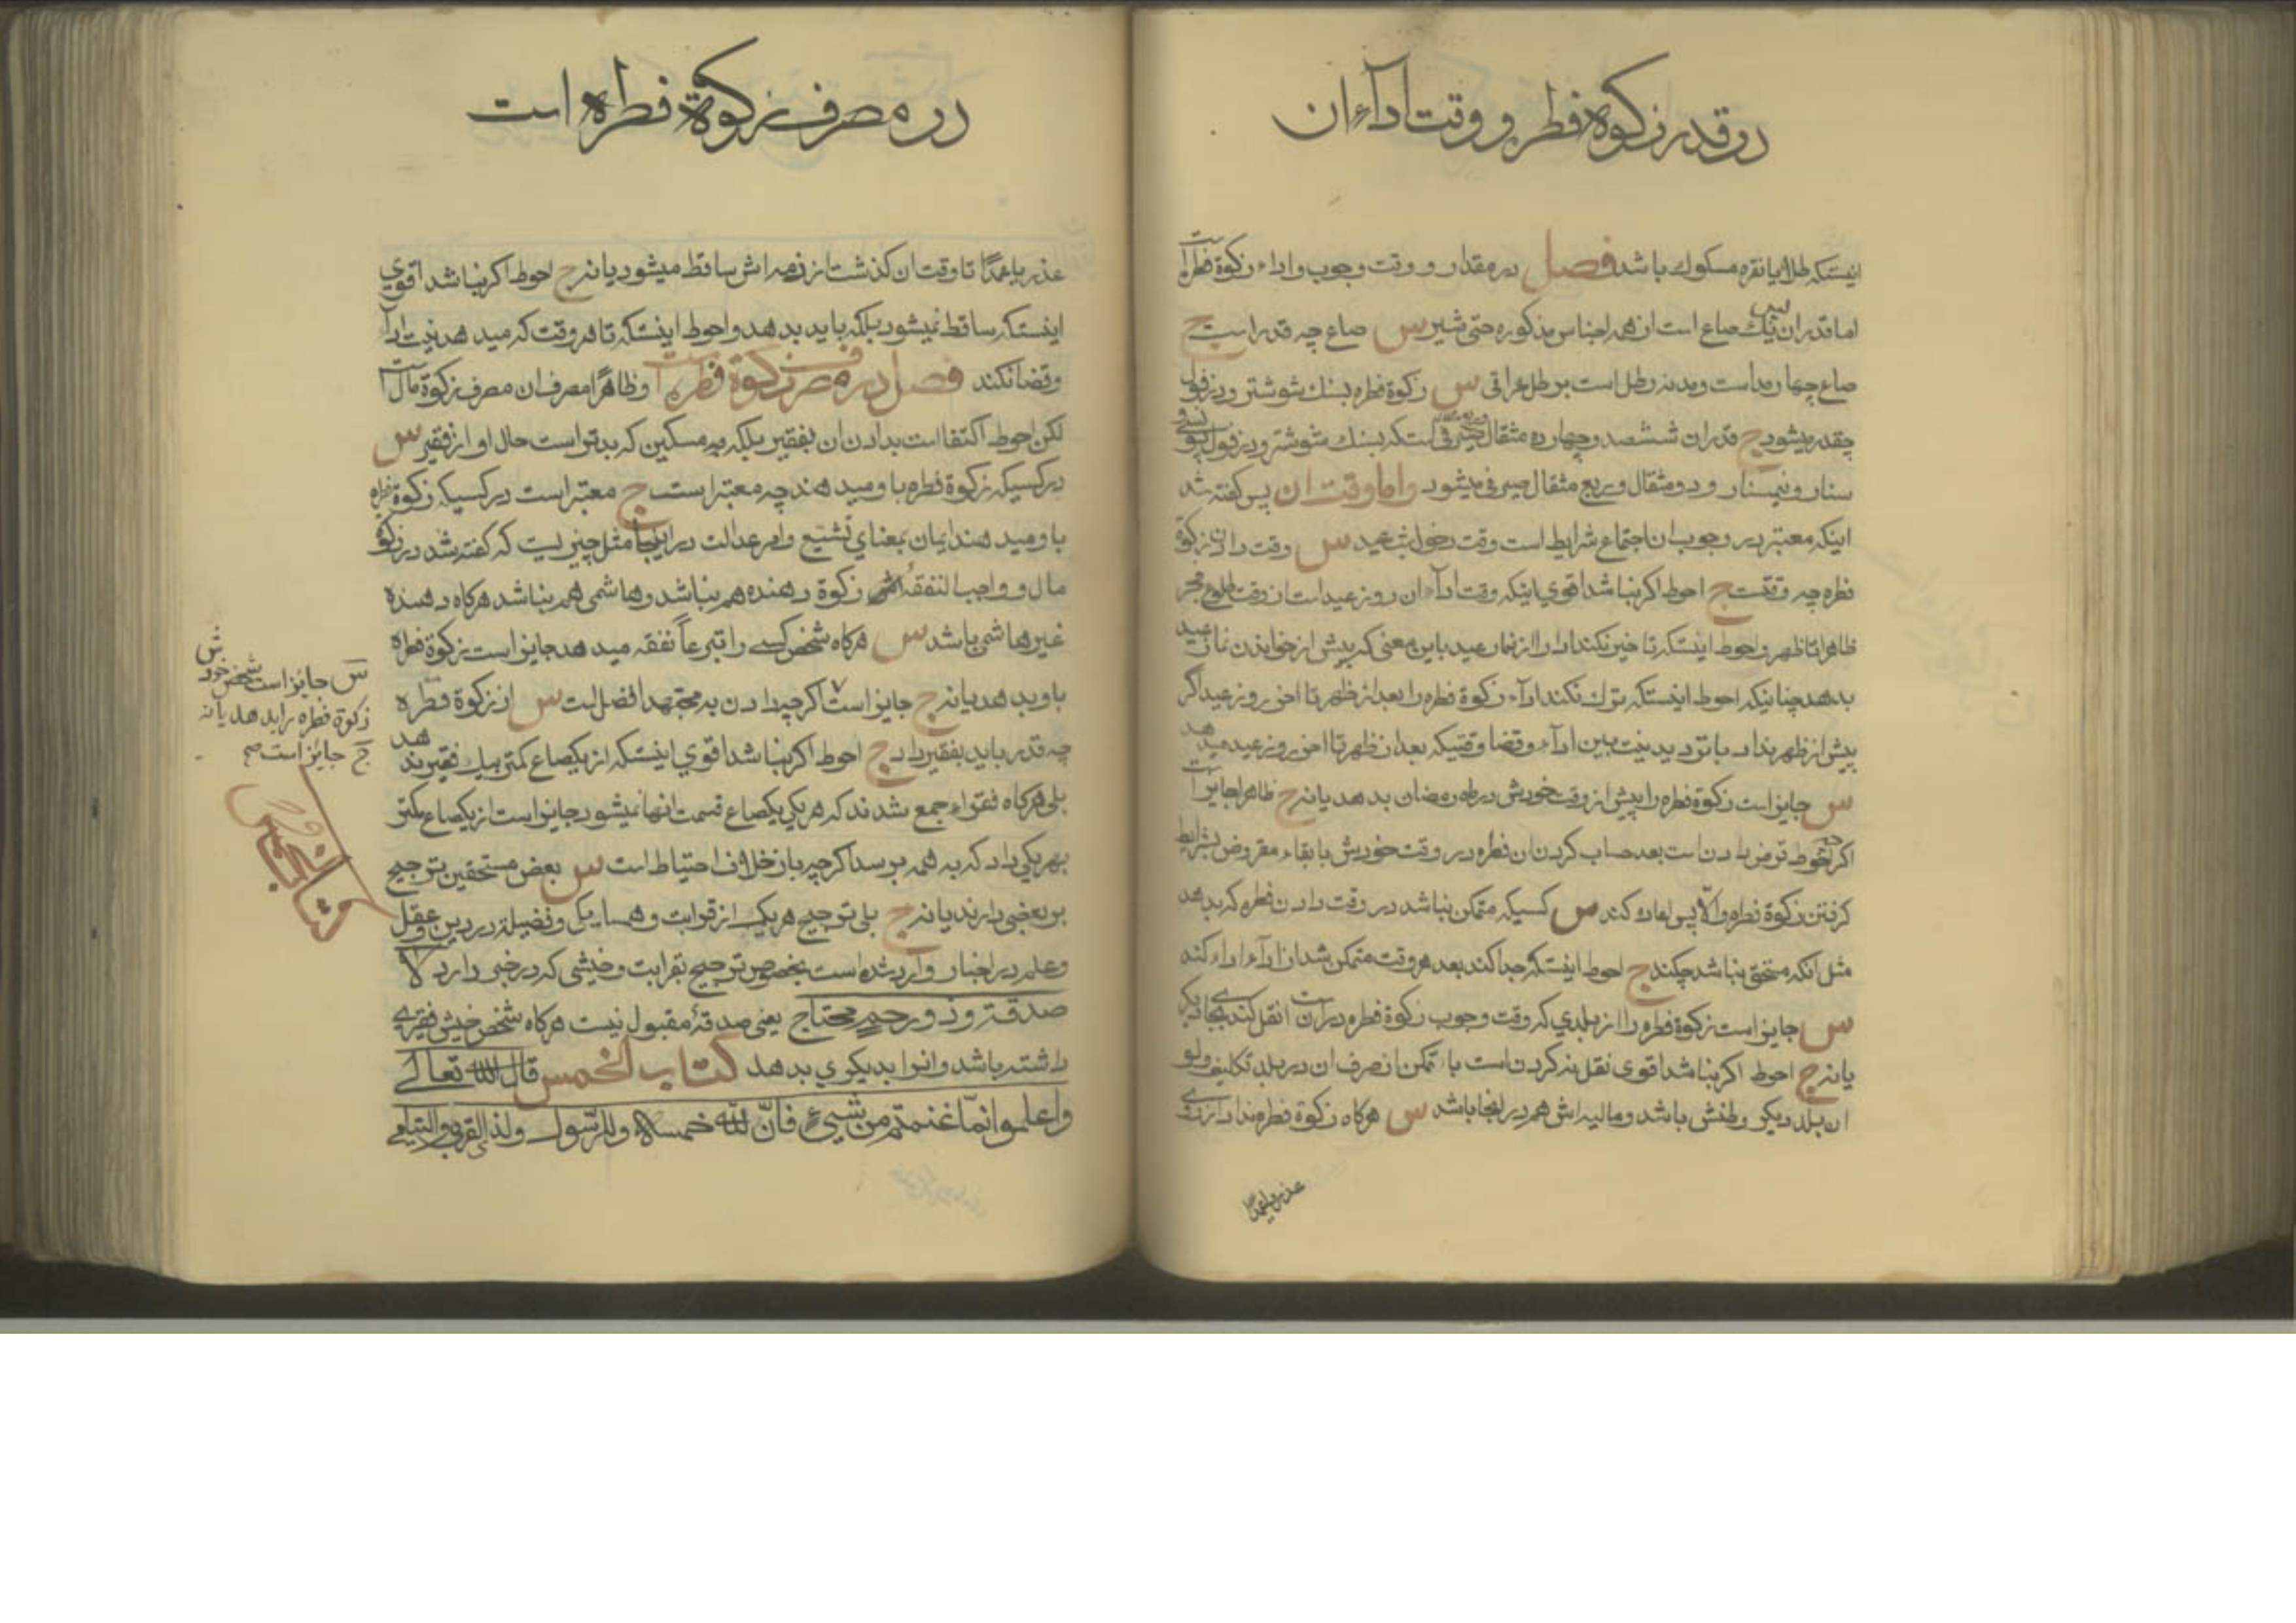 در قدر زکوة فطر و وقت اداء ان
اینستکه طلا یا نقره مسکوك باشد فصل در مقدار و وقت وجوب و اداء زکوة فطره است
اما قدر ان پس یك صاع است از همه اجناس مذکوره حتی شیر س صاع چه قدر است ج
صاع چهار مد است و مد نه رطل است برطل عراقی س زکوة فطره بسنك شوشتر و دزفول
چقدر میشود ج قدر ان ششصد و چهارده مثقال صیرفی استکه بسنك شوشتر و دزفول
ونیمسنار و دو مثقال و ربع مثقال صیرفی میشود واما وقت ان پس گفته شد
اینکه معتبر در وجوب ان اجتماع شرایط است وقت دخول شب عید س وقت دادن زکوة
فطره چه وقتست ج احوط اکر نباشد اقوی اینکه وقت اداء ان روز عید است از وقت طلوع فجر
ظاهرا تا ظهر و احوط اینستکه تاخیر نکند او را از نماز عید باین معنی که پیش از خواندن نماز عید
بدهد چنانیکه احوط اینستکه ترك نکند اداء زکوة فطره را بعد از ظهر تا اخر روز عید اکر
پیش از ظهر نداد با تردید نیت بین اداء و قضا وقتیکه بعد از ظهر تا اخر روز عید میدهد
س جایز است زکوة فطره را پیش از وقت خودش در ماه رمضان بدهد یا نه ج ظاهرا جایز است
اکرچه احوط قرض دادن است بعد حساب کردن ان فطره در وقت خودش با بقاء مقروض بشرایط
کرفتن زکوة فطره والّا پس اعاده کند س کسیکه متمکن نباشد در وقت دادن فطره که بدهد
مثل انکه مستحق نباشد چکند ج احوط اینستکه جدا کند بعد هر وقت متمکن شد از اداء اداء کند
س جایز است زکوة فطره را از بلدی که وقت وجوب زکوة فطره در ان است نقل کند بجای دیکر
یا نه ج احوط اکر نباشد اقوی نقل نه کردن است با تمکن از صرف ان در بلد تکلیف ولو
ان بلد دیکر وطنش باشد و مالیه اش هم در انجا باشد س هرکاه زکوة فطره نداد از روی
عذر یا عمداً
در مصرف زکوة فطره است
عذر یا عمداً تا وقت ان کذشت از ذمه اش ساقط میشود یا نه ج احوط اکر نباشد اقوی
اینستکه ساقط نمیشود بلکه باید بدهد و احوط اینستکه تا هر وقت که میدهد نیت اداء
و قضا نکند فصل در مصرف زکوة فطره است و ظاهراً مصرف ان مصرف زکوة مال است
لکن احوط اکتفا است بدادن ان بفقیر بلکه به مسکین که بدتر است حال او از فقیر س
در کسیکه زکوة فطره باو میدهند چه معتبر است ج معتبر است در کسیکه زکوة فطره
باو میدهند ایمان بمعنای تشیع و امر عدالت در اینجا مثل چیزیست که کفته شد در زکوة
مال و واجب النفقه زکوة دهنده هم نباشد و هاشمی هم نباشد هرکاه دهنده
غیر هاشمی باشد س هرکاه شخص کسی را تبرعاً نفقه میدهد جایز است زکوة فطره
باو بدهد یا نه ج جایز است اکرچه دادن به مجتهد افضل است س از زکوة فطره
چه قدر باید بفقیر داد ج احوط اکر نباشد اقوی اینستکه از یکصاع کمتر بیك فقیر ندهد
بلی هرکاه فقراء جمع شدند که هر یکی یکصاع قسمت انها نمیشود جایز است از یکصاع کمتر
بهر یکی داد که به همه برسد اکرچه باز خلاف احتیاط است س بعض مستحقین ترجیح
بر بعضی دارند یا نه ج بلی ترجیح هر یك از قرابت و همسایکی و فضیلة در دین و عقل
و علم در اخبار وارد شده است بخصوص ترجیح بقرابت و خیشی که در خبر دارد لا
صدقة و ذو رحم محتاج یعنی صدقهٔ مقبول نیست هرکاه شخص خیش فقیری
داشته باشد و انرا بدیکری بدهد کتاب الخمس قال الله تعالی
واعلموا انّما غنمتم من شیئ فانّ لله خمسه وللرّسول ولذی القربی والیتامی
س جایز است شخص خودش
زکوة فطره را بدهد یا نه
ج جایز است صح
کتاب الخمس